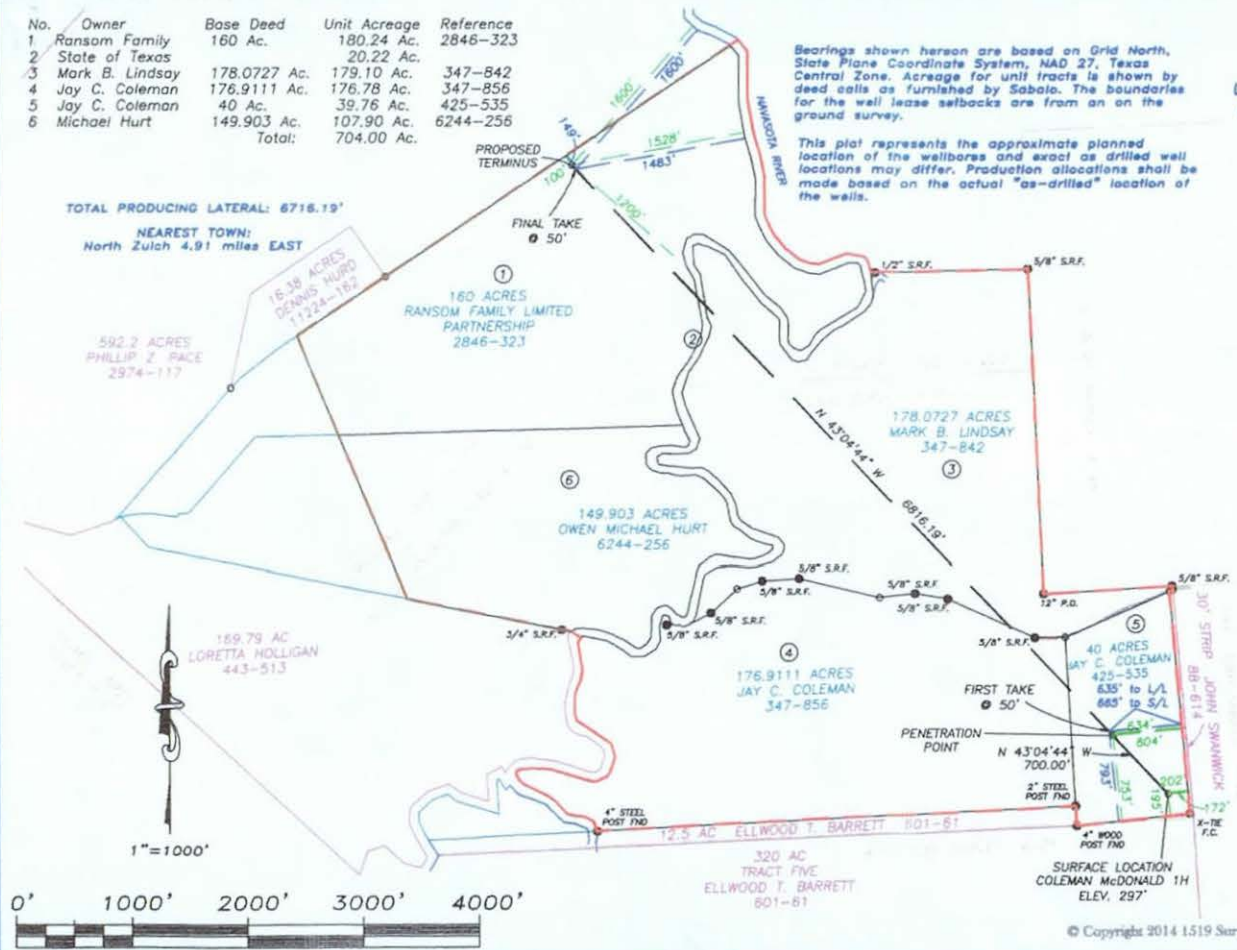 No. Owner Base Deed Unit Acreage Reference
1 Ransom Family 160 Ac. 180.24 Ac. 2846-323
2 State of Texas 20.22 Ac.
3 Mark B. Lindsay 178.0727 Ac. 179.10 Ac. 347-842
4 Jay C. Coleman 176.9111 Ac. 176.78 Ac. 347-856
5 Jay C. Coleman 40 Ac. 39.76 Ac. 425-535
6 Michael Hurt 149.903 Ac. 107.90 Ac. 6244-256
Total: 704.00 Ac.
Bearings shown hereon are based on Grid North,
State Plane Coordinate System, NAD 27, Texas
Central Zone. Acreage for unit tracts is shown by
deed calls as furnished by Sabalo. The boundaries
for the well lease setbacks are from an on the
ground survey.
This plat represents the approximate planned
location of the wellbores and exact as drilled well
locations may differ. Production allocations shall be
made based on the actual "as-drilled" location of
the wells.
1600'
1600'
149'
1528'
1483'
100'
1200'
NAVASOTA RIVER
PROPOSED
TERMINUS
FINAL TAKE
@ 50'
TOTAL PRODUCING LATERAL: 6716.19'
NEAREST TOWN:
North Zulch 4.91 miles EAST
16.38 ACRES
DENNIS HURD
11224-162
592.2 ACRES
PHILLIP Z. PACE
2974-117
1
160 ACRES
RANSOM FAMILY LIMITED
PARTNERSHIP
2846-323
2
1/2" S.R.F.
5/8" S.R.F.
178.0727 ACRES
MARK B. LINDSAY
347-842
3
N 43°04'44" W
6816.19'
6
149.903 ACRES
OWEN MICHAEL HURT
6244-256
5/8" S.R.F.
5/8" S.R.F.
5/8" S.R.F.
5/8" S.R.F.
5/8" S.R.F.
5/8" S.R.F.
3/4" S.R.F.
12" P.O.
5/8" S.R.F.
169.79 AC
LORETTA HOLLIGAN
443-513
4
176.9111 ACRES
JAY C. COLEMAN
347-856
5
40 ACRES
JAY C. COLEMAN
425-535
635' to L/L
665' to S/L
30' STRIP JOHN SWANWICK
88-614
FIRST TAKE
@ 50'
PENETRATION
POINT
N 43°04'44" W
700.00'
634'
604'
793'
753'
202'
195'
172'
X-TIE
F.C.
2" STEEL
POST FND
4" STEEL
POST FND
4" WOOD
POST FND
12.5 AC ELLWOOD T. BARRETT 601-61
320 AC
TRACT FIVE
ELLWOOD T. BARRETT
601-61
SURFACE LOCATION
COLEMAN McDONALD 1H
ELEV. 297'
1"=1000'
0' 1000' 2000' 3000' 4000'
© Copyright 2014 1519 Sur